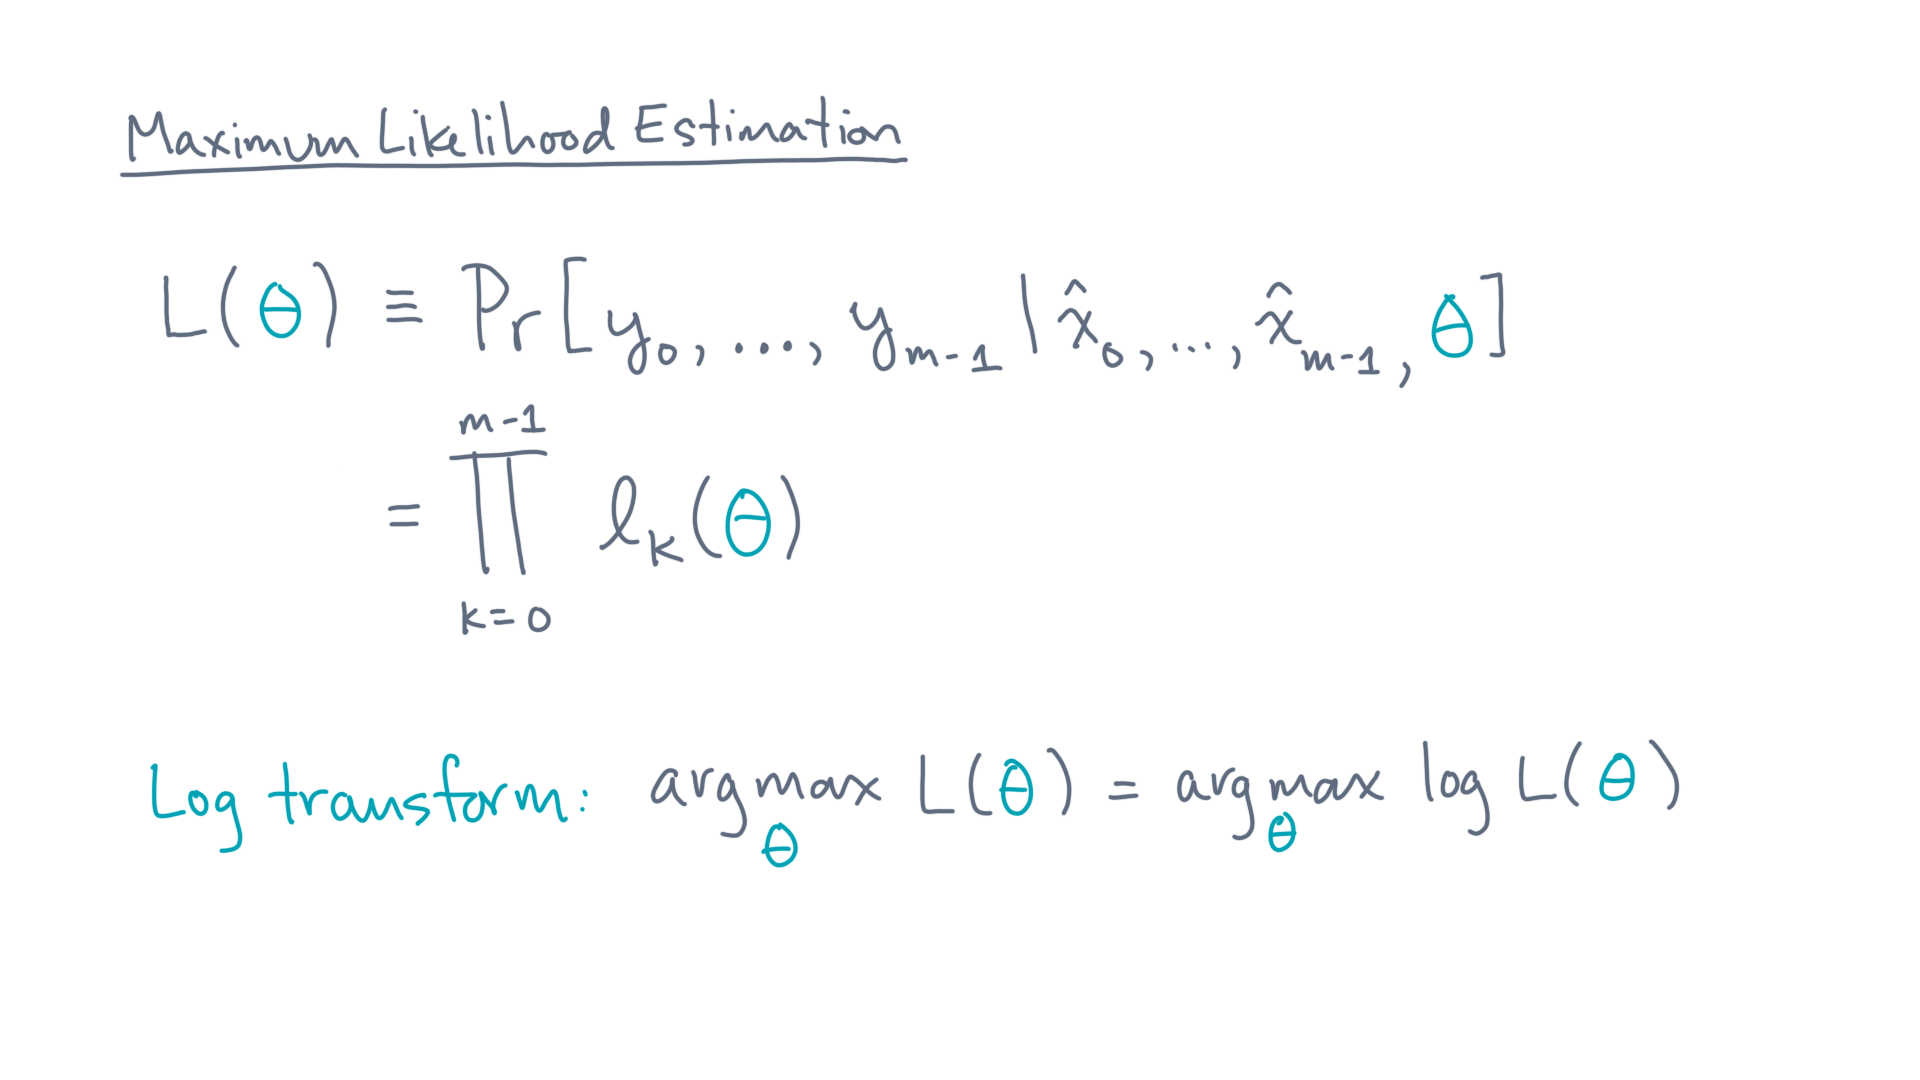 Maximum Likelihood Estimation
L(θ) ≡ Pr[y₀, ..., yₘ₋₁ | x̂₀, ..., x̂ₘ₋₁, θ]
m-1
= ∏ ℓₖ(θ)
k=0
Log transform: argmax L(θ) = argmax log L(θ)
θ θ